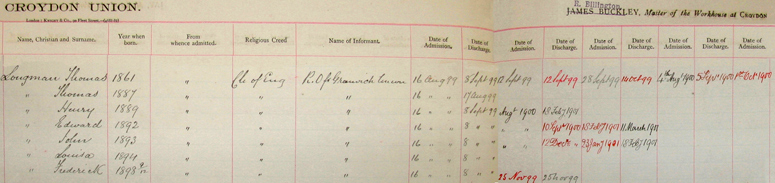 CROYDON UNION.
R. Billington
JAMES BUCKLEY, Master of the Workhouse at CROYDON
Name, Christian and Surname. Year when born. From whence admitted. Religious Creed Name of Informant. Date of Admission. Date of Discharge. Date of Admission. Date of Discharge. Date of Discharge. Date of Discharge. Date of Admission. Date of Discharge. Date of Discharge.
Longman Thomas 1861 " Ch of Eng R.O. 16 Aug 99 8 Sept 99 12 Sept 99 12 Sept 99 28 Sept 99 14 Oct 99 1900 1900
" Thomas 1887 " " " 16 " " 17 Aug 99
" Henry 1889 " " " 16 " " 8 Sept 99 Augt 1900 18 Feby 1901
" Edward 1892 " " " 16 " " 8 " " " " 1900 18 Feby 1901 11 March 1901
" John 1893 " " " 16 " " 8 " " " " 23 Jany 1901 18 Feby 1901
" Louisa 1894 " " " 16 " " 8 " "
" Frederick 1898 " " " 16 " " 8 " " 25 Nov 99 25 Nov 99